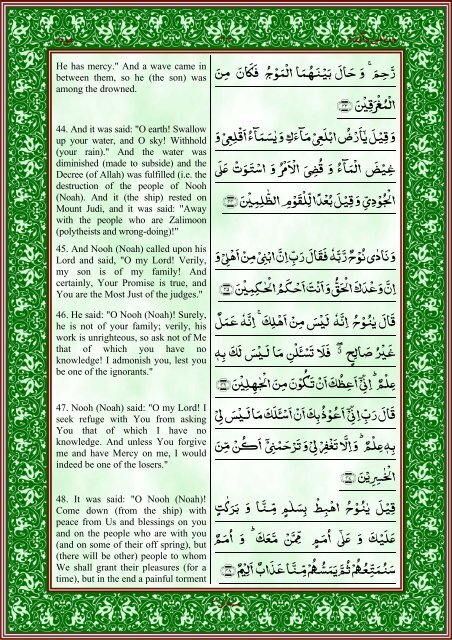 He has mercy." And a wave came in
between them, so he (the son) was
among the drowned.
44. And it was said: "O earth! Swallow
up your water, and O sky! Withhold
(your rain)." And the water was
diminished (made to subside) and the
Decree (of Allah) was fulfilled (i.e. the
destruction of the people of Nooh
(Noah). And it (the ship) rested on
Mount Judi, and it was said: "Away
with the people who are Zalimoon
(polytheists and wrong-doing)!"
45. And Nooh (Noah) called upon his
Lord and said, "O my Lord! Verily,
my son is of my family! And
certainly, Your Promise is true, and
You are the Most Just of the judges."
46. He said: "O Nooh (Noah)! Surely,
he is not of your family; verily, his
work is unrighteous, so ask not of Me
that of which you have no
knowledge! I admonish you, lest you
be one of the ignorants."
47. Nooh (Noah) said: "O my Lord! I
seek refuge with You from asking
You that of which I have no
knowledge. And unless You forgive
me and have Mercy on me, I would
indeed be one of the losers."
48. It was said: "O Nooh (Noah)!
Come down (from the ship) with
peace from Us and blessings on you
and on the people who are with you
(and on some of their off spring), but
(there will be other) people to whom
We shall grant their pleasures (for a
time), but in the end a painful torment
رَّحِمَ ۚ وَ حَالَ بَيْنَهُمَا الْمَوْجُ فَكَانَ مِنَ
الْمُغْرَقِيْنَ ﴿۴۳﴾
وَ قِيْلَ يٰۤاَرْضُ ابْلَعِيْ مَآءَكِ وَ يٰسَمَآءُ اَقْلِعِيْ وَ
غِيْضَ الْمَآءُ وَ قُضِيَ الْاَمْرُ وَ اسْتَوَتْ عَلَى
الْجُوْدِيِّ وَ قِيْلَ بُعْدًا لِّلْقَوْمِ الظّٰلِمِيْنَ ﴿۴۴﴾
وَ نَادٰى نُوْحٌ رَّبَّهٗ فَقَالَ رَبِّ اِنَّ ابْنِيْ مِنْ اَهْلِيْ وَ
اِنَّ وَعْدَكَ الْحَقُّ وَ اَنْتَ اَحْكَمُ الْحٰكِمِيْنَ ﴿۴۵﴾
قَالَ يٰنُوْحُ اِنَّهٗ لَيْسَ مِنْ اَهْلِكَ ۚ اِنَّهٗ عَمَلٌ
غَيْرُ صَالِحٍ ۖ فَلَا تَسْـَٔلْنِ مَا لَيْسَ لَكَ بِهٖ
عِلْمٌ ؕ اِنِّيْۤ اَعِظُكَ اَنْ تَكُوْنَ مِنَ الْجٰهِلِيْنَ ﴿۴۶﴾
قَالَ رَبِّ اِنِّيْۤ اَعُوْذُ بِكَ اَنْ اَسْـَٔلَكَ مَا لَيْسَ لِيْ
بِهٖ عِلْمٌ ؕ وَ اِلَّا تَغْفِرْ لِيْ وَ تَرْحَمْنِيْۤ اَكُنْ مِّنَ
الْخٰسِرِيْنَ ﴿۴۷﴾
قِيْلَ يٰنُوْحُ اهْبِطْ بِسَلٰمٍ مِّنَّا وَ بَرَكٰتٍ
عَلَيْكَ وَ عَلٰۤى اُمَمٍ مِّمَّنْ مَّعَكَ ؕ وَ اُمَمٌ
سَنُمَتِّعُهُمْ ثُمَّ يَمَسُّهُمْ مِّنَّا عَذَابٌ اَلِيْمٌ ﴿۴۸﴾